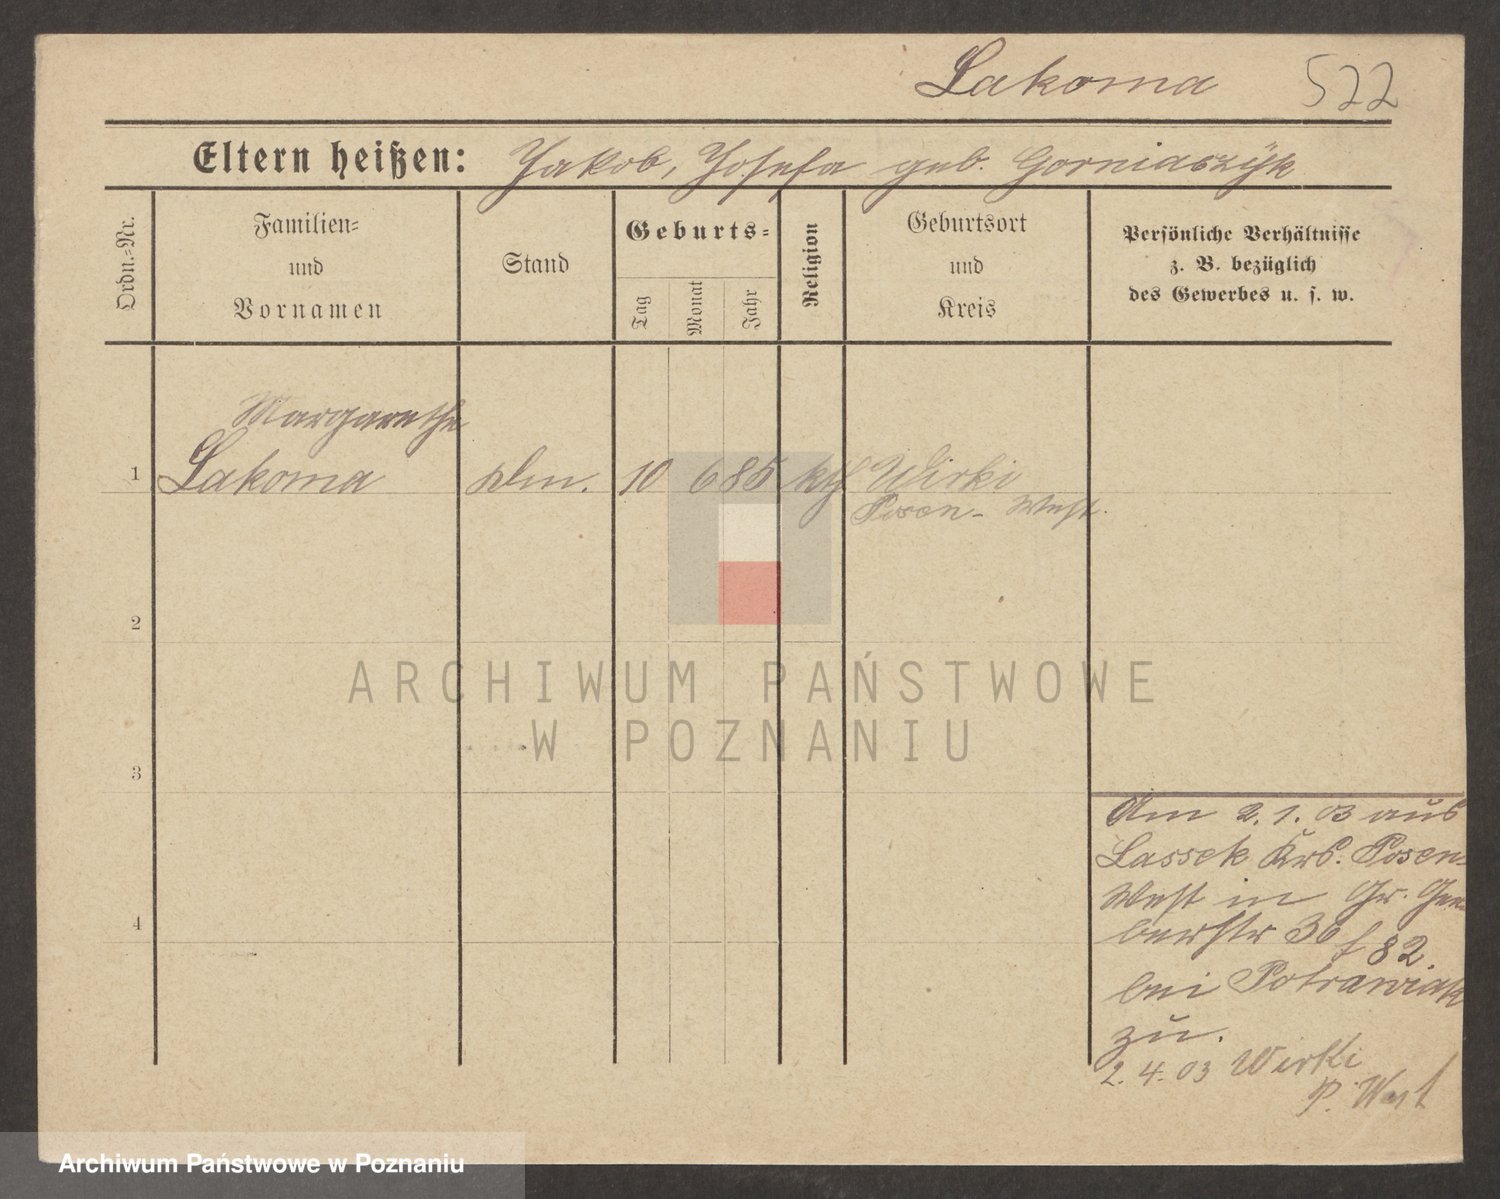 Lakoma 522
Eltern heißen: Jakob, Josefa geb. Gorniaszyk
Ordn.-Nr.
Familien-
und
Vornamen
Stand
Geburts-
Tag
Monat
Jahr
Religion
Geburtsort
und
Kreis
Persönliche Verhältnisse
z. B. bezüglich
des Gewerbes u. s. w.
Margarethe
1 Lakoma Dm. 10 6 85 kth Wirki
Posen- West.
2
3
4
Am 2. 1. 03 aus
Lassek Krs. Posen-
West in Gr. Ger-
berstr 36 f 82.
bei Potrawiak
zu.
2. 4. 03 Wirki
P. West
ARCHIWUM PAŃSTWOWE
W POZNANIU
Archiwum Państwowe w Poznaniu